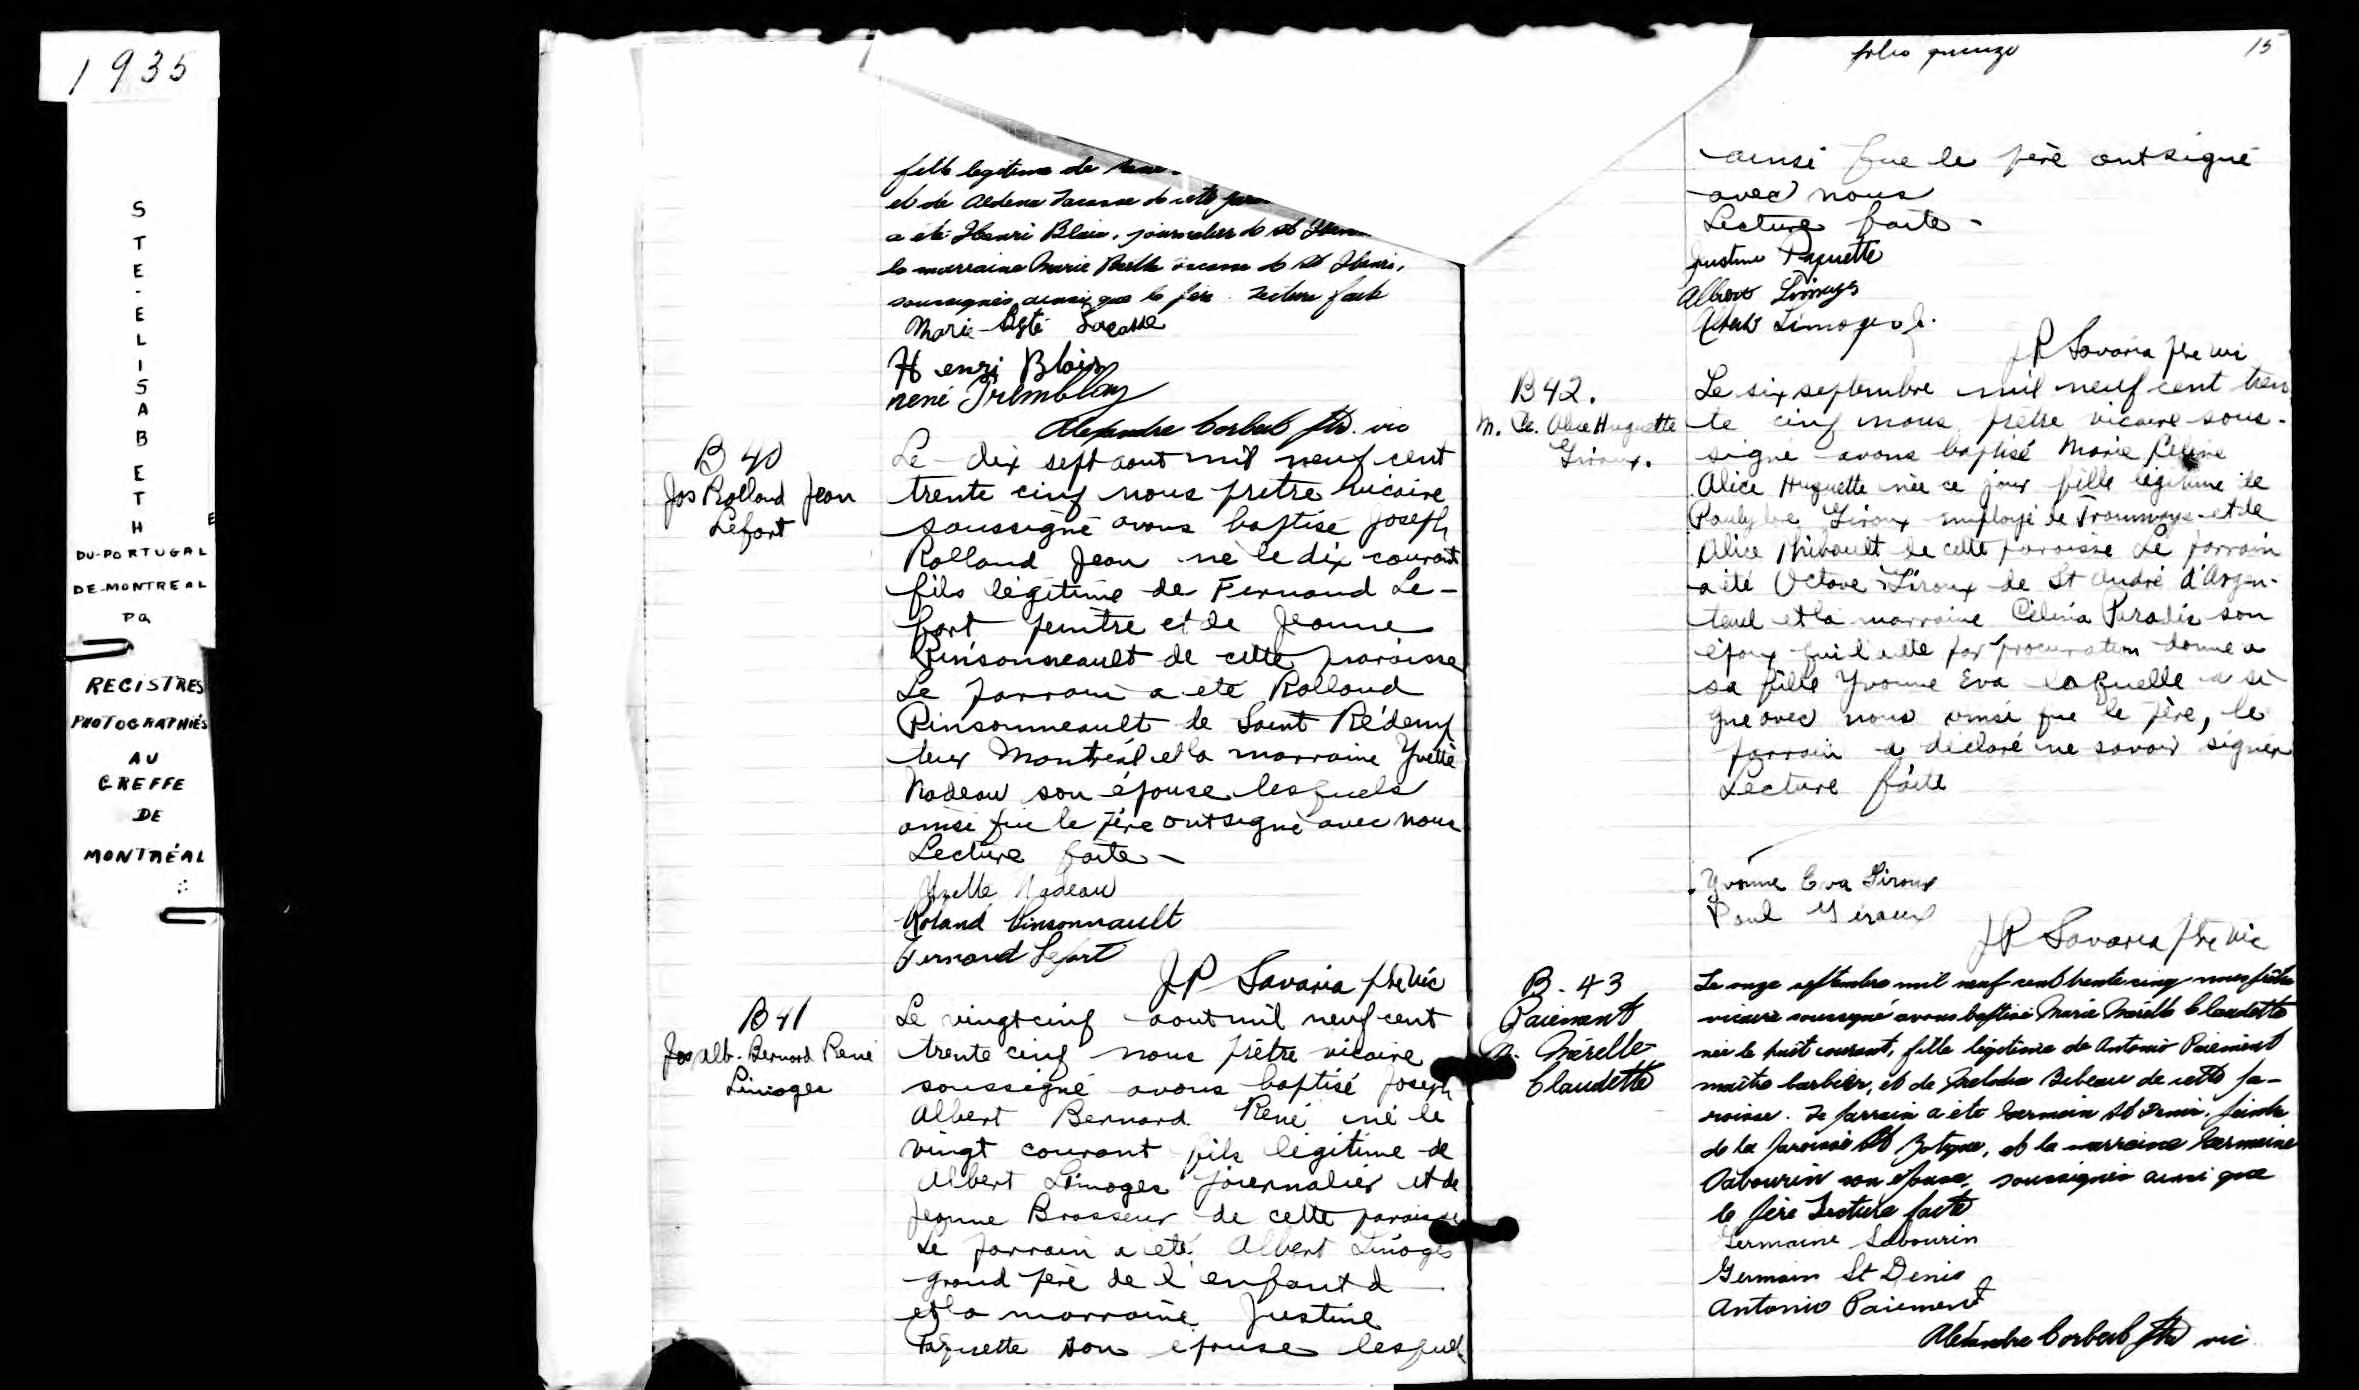 1935
STE-ELISABETH
DU-PORTUGAL
DE-MONTREAL
PQ
REGISTRES
PHOTOGRAPHIÉS
AU
GREFFE
DE
MONTRÉAL
fille legitime de
et de Aldena Lacasse de cette
a été Henri Blais, journalier de St
la marraine Marie Lacasse de St Henri,
soussignés ainsi que le père. Lecture faite
Marie Lacasse
Henri Blais
René Tremblay
Alexandre Corbeil ptr. vic
B 40
Jos Rolland Jean
Lefort
Le dix sept aout mil neuf cent
trente cinq nous pretre vicaire
soussigné avons baptisé Joseph
Rolland Jean né le dix courant
fils légitime de Fernand Le-
fort peintre et de Jeanne
Pinsonneault de cette paroisse
Le parrain a ete Rolland
Pinsonneault de Saint Rédemp
teur Montréal et la marraine Yvette
Nadeau son épouse lesquels
ainsi que le père ont signé avec nous
Lecture faite -
Yvette Nadeau
Roland Pinsonnault
Fernand Lefort
JP Savaria ptre vic
B 41
Jos Alb. Bernard René
Limoges
Le vingt cinq aout mil neuf cent
trente cinq nous prêtre vicaire
soussigné avons baptisé Joseph
Albert Bernard René né le
vingt courant fils légitime de
Albert Limoges journalier et de
Jeanne Brasseur de cette paroisse
Le parrain a eté Albert Limoges
grand père de l'enfant
et la marraine Justine
Paquette son épouse lesquels
folio quinze
15
ainsi que le père ont signé
avec nous
Lecture faite -
Justine Paquette
Albert Limoges
Albert Limoges
JP Savaria ptre vic
B42.
M. Ce. Alice Huguette
Giroux.
Le six septembre mil neuf cent tren
te cinq nous prêtre vicaire sous-
signé avons baptisé Marie Céline
Alice Huguette née ce jour fille légitime de
Giroux employé de Tramways et de
Alice Thibault de cette paroisse Le parrain
a été Octave Giroux de St André d'Argen-
teuil et la marraine Célina Paradis son
par procuration donné a
sa fille Yvonne Eva laquelle a si
gné avec nous ainsi que le père, le
parrain a déclaré ne savoir signer
Lecture faite
Yvonne Eva Giroux
Paul Giroux
JP Savaria ptre vic
B-43
Paiement
M. Mirelle
Claudette
Le onze septembre mil neuf cent trente cinq nous prêtre
vicaire soussigné avons baptisé Marie Mirelle Claudette
née le huit courant, fille légitime de Antonio Paiement
maître barbier, et de Bibeau de cette pa-
roisse. Le parrain a été Germain St Denis,
de la paroisse St Zotique, et la marraine Germaine
Sabourin son épouse, soussignés ainsi que
le père Lecture faite
Germaine Sabourin
Germain St Denis
Antonio Paiement
Alexandre Corbeil ptr vic